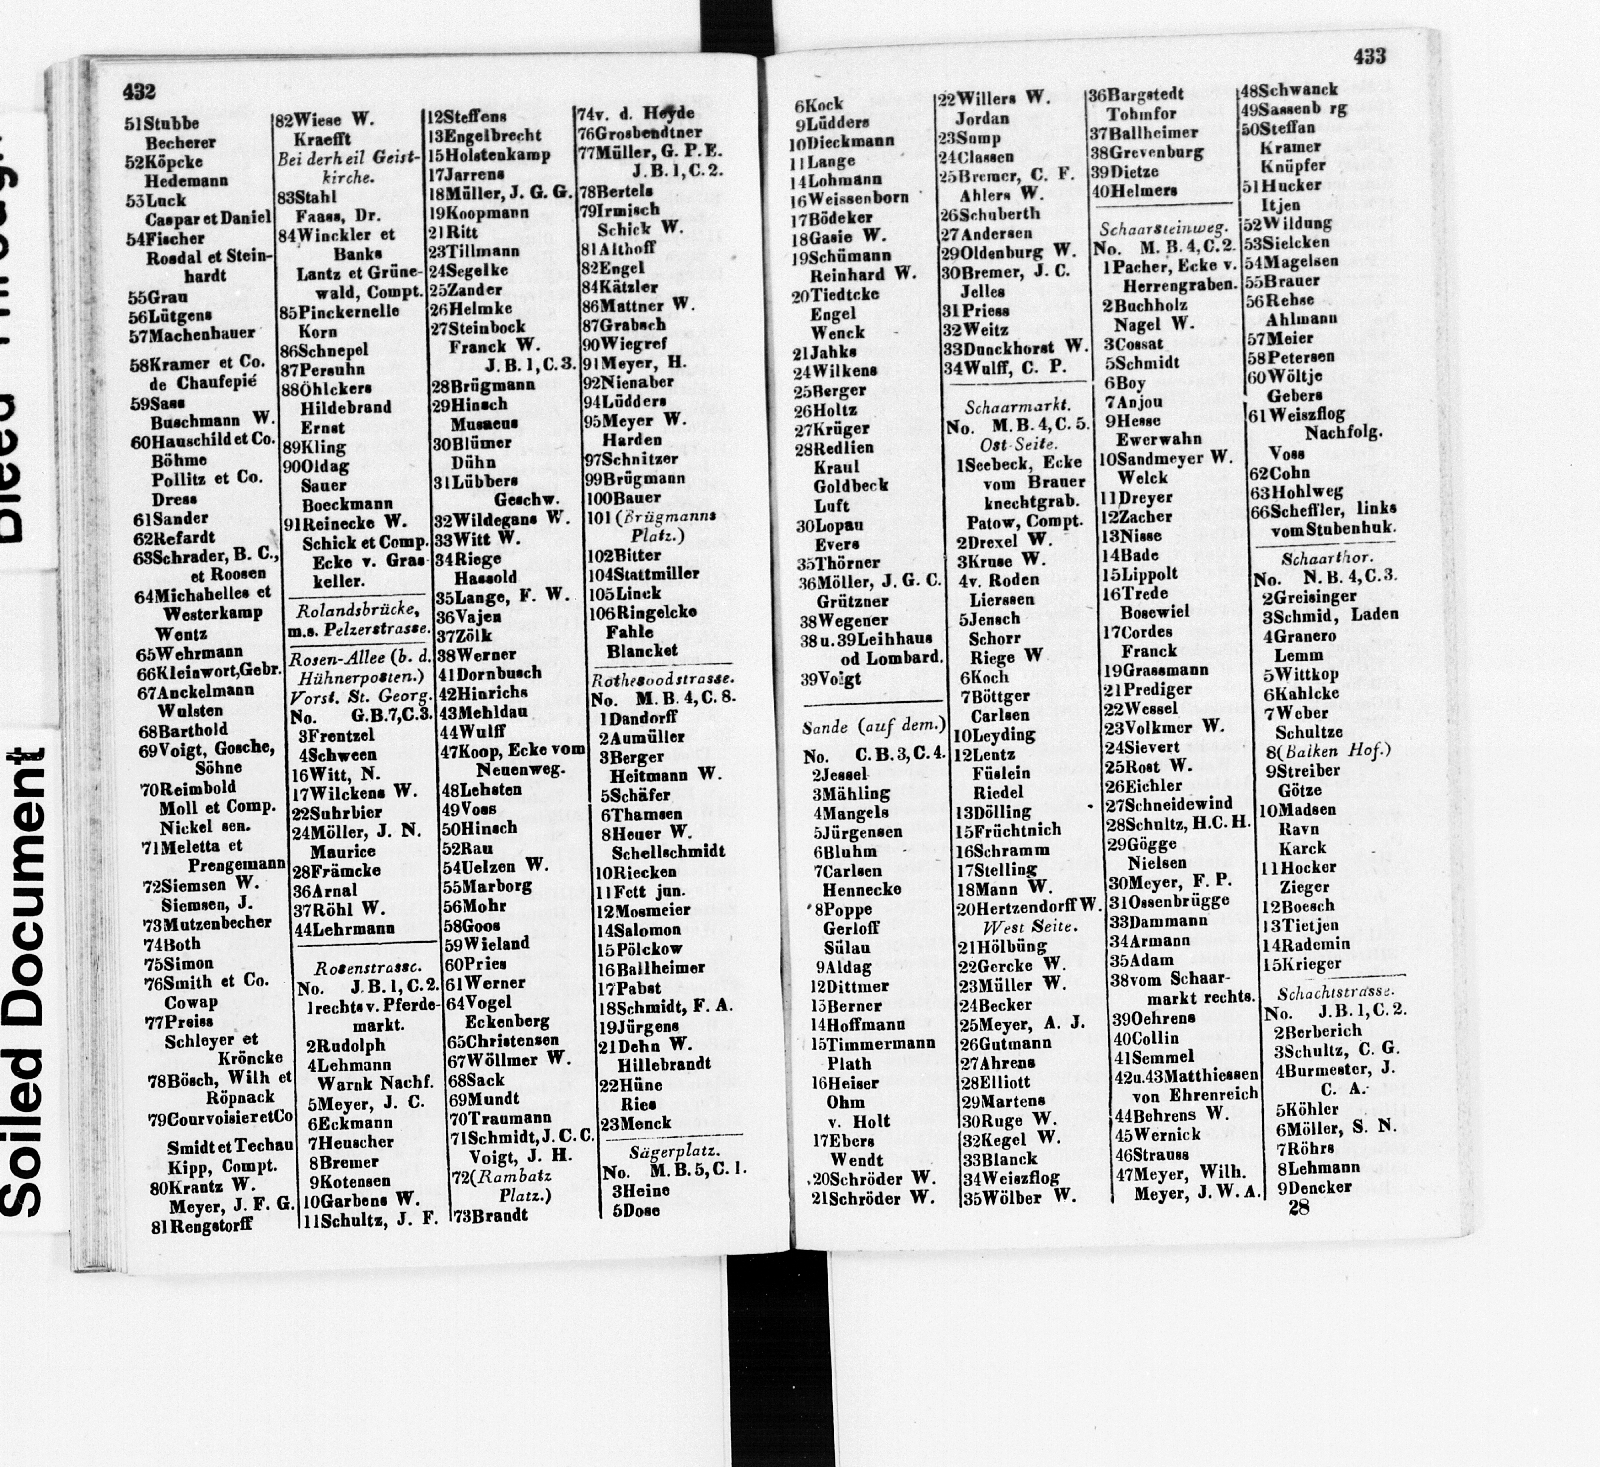 432
51 Stubbe
Becherer
52 Köpcke
Hedemann
53 Luck
Caspar et Daniel
54 Fischer
Rosdal et Stein-
hardt
55 Grau
56 Lütgens
57 Machenhauer
58 Kramer et Co.
de Chaufepié
59 Sass
Buschmann W.
60 Hauschild et Co.
Böhme
Pollitz et Co.
Dress
61 Sander
62 Refardt
63 Schrader, B. C.,
et Roosen
64 Michahelles et
Westerkamp
Wentz
65 Wehrmann
66 Kleinwort, Gebr.
67 Anckelmann
Wulsten
68 Barthold
69 Voigt, Gosche,
Söhne
70 Reimbold
Moll et Comp.
Nickel sen.
71 Meletta et
Prengemann
72 Siemsen W.
Siemsen, J.
73 Mutzenbecher
74 Both
75 Simon
76 Smith et Co.
Cowap
77 Preiss
Schleyer et
Kröncke
78 Bösch, Wilh et
Röpnack
79 Courvoisier et Co
Smidt et Techau
Kipp, Compt.
80 Krantz W.
Meyer, J. F. G.
81 Rengstorff
82 Wiese W.
Kraefft
Bei der heil Geist-
kirche.
83 Stahl
Faass, Dr.
84 Winckler et
Banks
Lantz et Grüne-
wald, Compt.
85 Pinckernelle
Korn
86 Schnepel
87 Persuhn
88 Öhlckers
Hildebrand
Ernst
89 Kling
90 Oldag
Sauer
Boeckmann
91 Reinecke W.
Schick et Comp.
Ecke v. Gras-
keller.
Rolandsbrücke,
m.s. Pelzerstrasse.
Rosen-Allee (b. d.
Hühnerposten.)
Vorst. St. Georg.
No. G.B.7,C.3.
3 Frentzel
4 Schween
16 Witt, N.
17 Wilckens W.
22 Suhrbier
24 Möller, J. N.
Maurice
28 Främcke
36 Arnal
37 Röhl W.
44 Lehrmann
Rosenstrasse.
No. J.B.1,C.2.
1 rechts v. Pferde-
markt.
2 Rudolph
4 Lehmann
Warnk Nachf.
5 Meyer, J. C.
6 Eckmann
7 Heuscher
8 Bremer
9 Kotensen
10 Garbens W.
11 Schultz, J. F.
12 Steffens
13 Engelbrecht
15 Holstenkamp
17 Jarrens
18 Müller, J. G. G.
19 Koopmann
21 Ritt
23 Tillmann
24 Segelke
25 Zander
26 Helmke
27 Steinbock
Franck W.
J.B.1,C.3.
28 Brügmann
29 Hinsch
Musaeus
30 Blümer
Dühn
31 Lübbers
Geschw.
32 Wildegans W.
33 Witt W.
34 Riege
Hassold
35 Lange, F. W.
36 Vajen
37 Zölk
38 Werner
41 Dornbusch
42 Hinrichs
43 Mehldau
44 Wulff
47 Koop, Ecke vom
Neuenweg.
48 Lehsten
49 Voss
50 Hinsch
52 Rau
54 Uelzen W.
55 Marborg
56 Mohr
58 Goos
59 Wieland
60 Pries
61 Werner
64 Vogel
Eckenberg
65 Christensen
67 Wöllmer W.
68 Sack
69 Mundt
70 Traumann
71 Schmidt, J. C. C.
Voigt, J. H.
72 (Rambatz
Platz.)
73 Brandt
74 v. d. Heyde
76 Grosbendtner
77 Müller, G. P. E.
J.B.1,C.2.
78 Bertels
79 Irmisch
Schick W.
81 Althoff
82 Engel
84 Kätzler
86 Mattner W.
87 Grabsch
90 Wiegref
91 Meyer, H.
92 Nienaber
94 Lüdders
95 Meyer W.
Harden
97 Schnitzer
99 Brügmann
100 Bauer
101 (Brügmanns
Platz.)
102 Bitter
104 Stattmiller
105 Linck
106 Ringelcke
Fahle
Blancket
Rothesoodstrasse.
No. M.B.4,C.8.
1 Dandorff
2 Aumüller
3 Berger
Heitmann W.
5 Schäfer
6 Thamsen
8 Heuer W.
Schellschmidt
10 Riecken
11 Fett jun.
12 Mosmeier
14 Salomon
15 Pölckow
16 Ballheimer
17 Pabst
18 Schmidt, F. A.
19 Jürgens
21 Dehn W.
Hillebrandt
22 Hüne
Ries
23 Menck
Sägerplatz.
No. M.B.5,C.1.
3 Heine
5 Dose
433
6 Kock
9 Lüdders
10 Dieckmann
11 Lange
14 Lohmann
16 Weissenborn
17 Bödeker
18 Gasie W.
19 Schümann
Reinhard W.
20 Tiedtcke
Engel
Wenck
21 Jahks
24 Wilkens
25 Berger
26 Holtz
27 Krüger
28 Redlien
Kraul
Goldbeck
Luft
30 Lopau
Evers
35 Thörner
36 Möller, J. G. C.
Grützner
38 Wegener
38 u. 39 Leihhaus
od Lombard.
39 Voigt
Sande (auf dem.)
No. C.B.3,C.4.
2 Jessel
3 Mähling
4 Mangels
5 Jürgensen
6 Bluhm
7 Carlsen
Hennecke
8 Poppe
Gerloff
Sülau
9 Aldag
12 Dittmer
13 Berner
14 Hoffmann
15 Timmermann
Plath
16 Heiser
Ohm
v. Holt
17 Ebers
Wendt
20 Schröder W.
21 Schröder W.
22 Willers W.
Jordan
23 Sump
24 Classen
25 Bremer, C. F.
Ahlers W.
26 Schuberth
27 Andersen
29 Oldenburg W.
30 Bremer, J. C.
Jelles
31 Priess
32 Weitz
33 Dunckhorst W.
34 Wulff, C. P.
Schaarmarkt.
No. M.B.4,C.5.
Ost-Seite.
1 Seebeck, Ecke
vom Brauer
knechtgrab.
Patow, Compt.
2 Drexel W.
3 Kruse W.
4 v. Roden
Lierssen
5 Jensch
Schorr
Riege W
6 Koch
7 Böttger
Carlsen
10 Leyding
12 Lentz
Füslein
Riedel
13 Dölling
15 Früchtnich
16 Schramm
17 Stelling
18 Mann W.
20 Hertzendorff W.
West Seite.
21 Hölbüng
22 Gercke W.
23 Müller W.
24 Becker
25 Meyer, A. J.
26 Gutmann
27 Ahrens
28 Elliott
29 Martens
30 Ruge W.
32 Kegel W.
33 Blanck
34 Weiszflog
35 Wölber W.
36 Bargstedt
Tobinfor
37 Ballheimer
38 Grevenburg
39 Dietze
40 Helmers
Schaarsteinweg.
No. M.B.4,C.2.
1 Pacher, Ecke v.
Herrengraben.
2 Buchholz
Nagel W.
3 Cossat
5 Schmidt
6 Boy
7 Anjou
9 Hesse
Ewerwahn
10 Sandmeyer W.
Welck
11 Dreyer
12 Zacher
13 Nisse
14 Bade
15 Lippolt
16 Trede
Bosewiel
17 Cordes
Franck
19 Grassmann
21 Prediger
22 Wessel
23 Volkmer W.
24 Sievert
25 Rost W.
26 Eichler
27 Schneidewind
28 Schultz, H. C. H.
29 Gögge
Nielsen
30 Meyer, F. P.
31 Ossenbrügge
33 Dammann
34 Armann
35 Adam
38 vom Schaar-
markt rechts.
39 Oehrens
40 Collin
41 Semmel
42 u. 43 Matthiessen
von Ehrenreich
44 Behrens W.
45 Wernick
46 Strauss
47 Meyer, Wilh.
Meyer, J. W. A.
48 Schwanck
49 Sassenb rg
50 Steffan
Kramer
Knüpfer
51 Hucker
Itjen
52 Wildung
53 Sielcken
54 Magelsen
55 Brauer
56 Rehse
Ahlmann
57 Meier
58 Petersen
60 Wöltje
Gebers
61 Weiszflog
Nachfolg.
Voss
62 Cohn
63 Hohlweg
66 Scheffler, links
vom Stubenhuk.
Schaarthor.
No. N.B.4,C.3.
2 Greisinger
3 Schmid, Laden
4 Granero
Lemm
5 Wittkop
6 Kahlcke
7 Weber
Schultze
8 (Balken Hof.)
9 Streiber
Götze
10 Madsen
Ravn
Karck
11 Hocker
Zieger
12 Boesch
13 Tietjen
14 Rademin
15 Krieger
Schachtstrasse.
No. J.B.1,C.2.
2 Berberich
3 Schultz, C. G.
4 Burmester, J.
C. A.
5 Köhler
6 Möller, S. N.
7 Röhrs
8 Lehmann
9 Dencker
28
Soiled Document